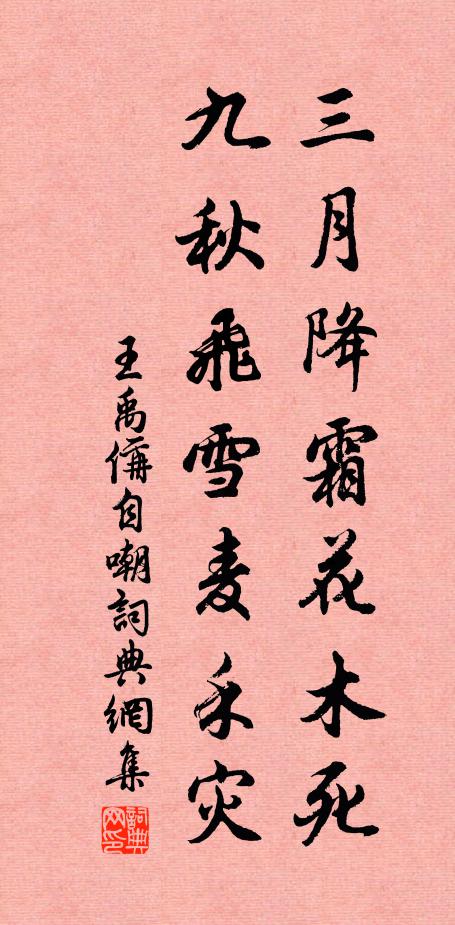 三月降霜花木死
九秋飛雪麦禾災
王禹偁自嘲詞典網集
詞典网印